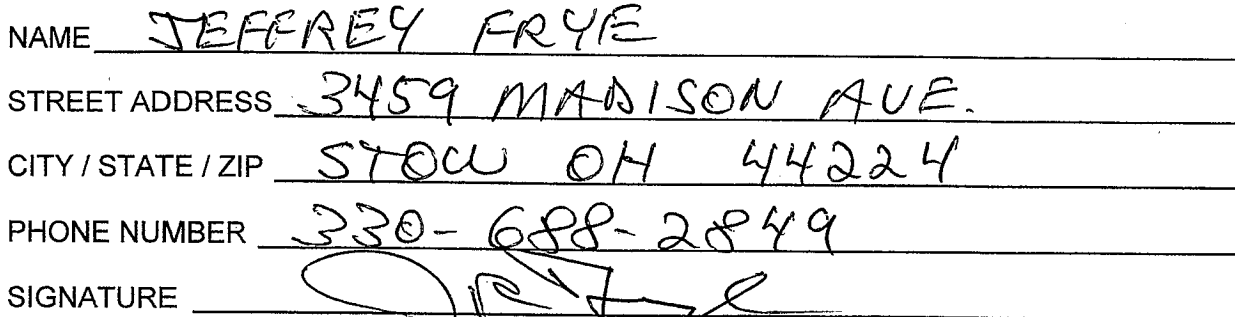 NAME JEFFREY FRYE
STREET ADDRESS 3459 MADISON AVE.
CITY / STATE / ZIP STOW OH 44224
PHONE NUMBER 330-688-2849
SIGNATURE